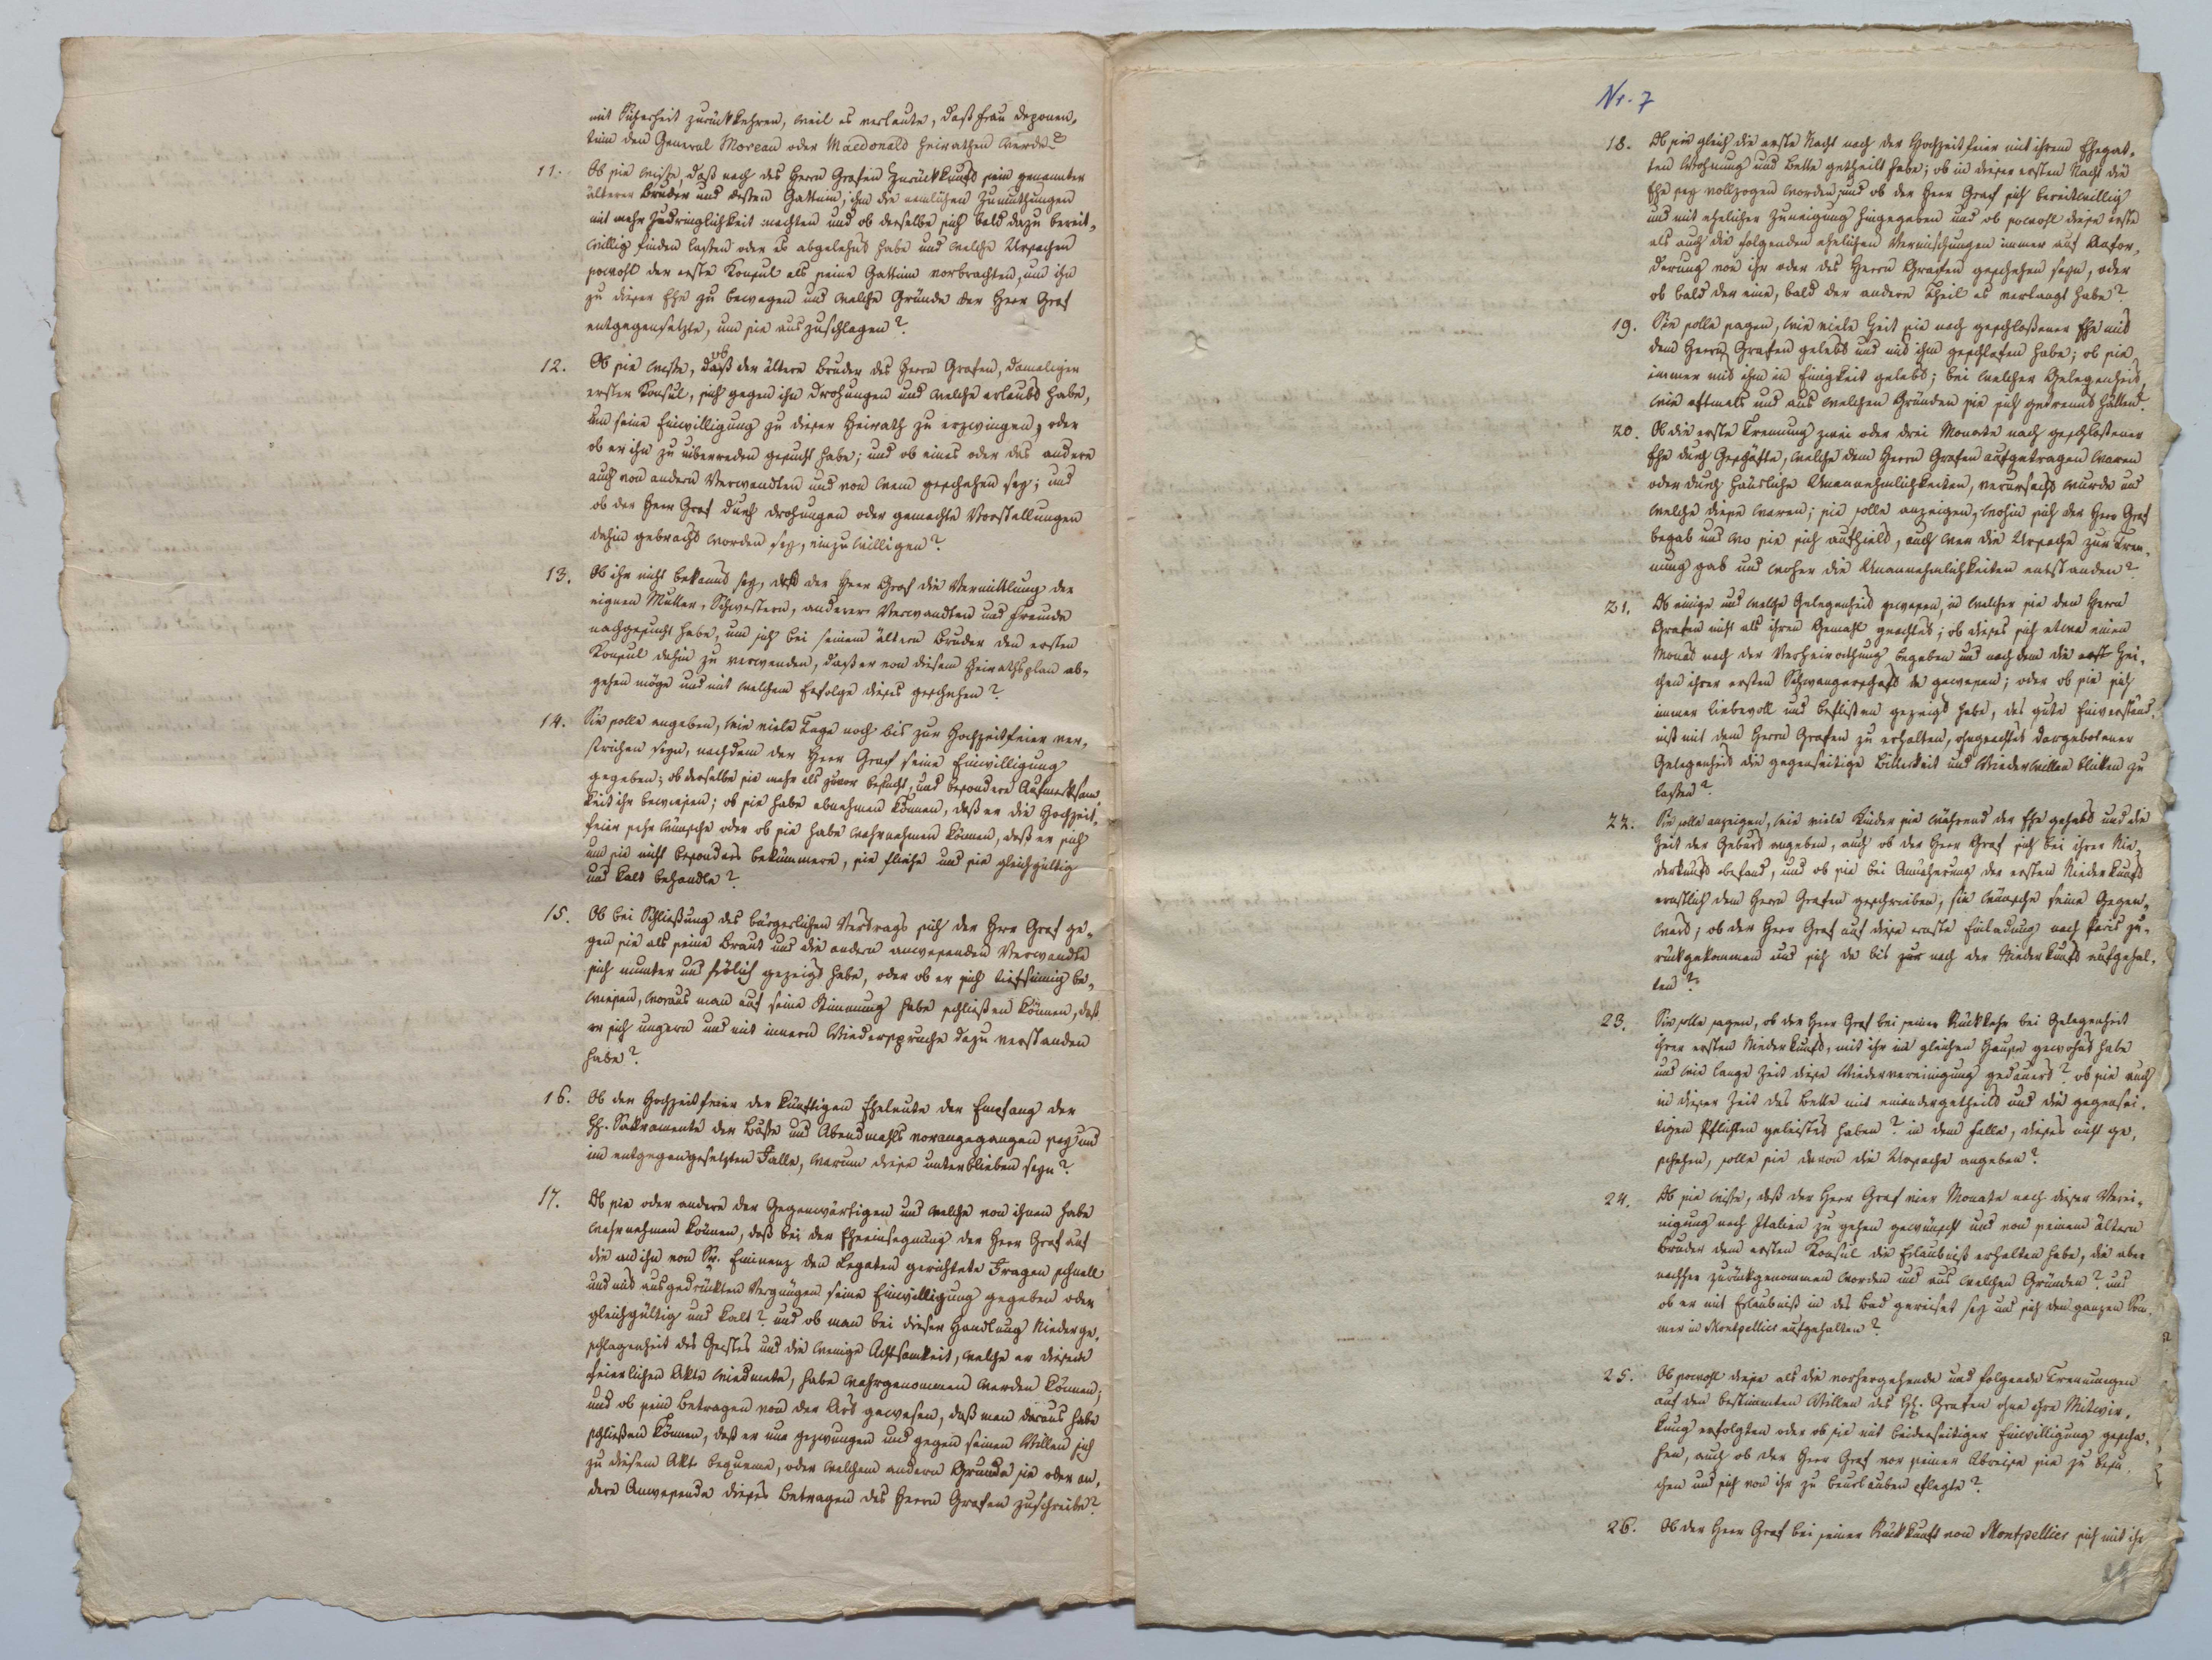 mit Sicherheit zurückkehren, weil es verlaute, daß Frau Deponen„
tinn den General Moreau oder Macdonald heirathen werde?
11. Ob sie wisse, daß nach des Herrn Grafen Zurückkunft sein genannter
älterer Bruder und dessen Gattinn, ihm die nemlichen Zumuthungen
mit mehr Zudringlichkeit machten und ob derselbe sich bald dazu bereit„
willig finden lassen oder es abgelehnt habe und welche Ursachen
sowohl der erste Konsul als seine Gattinn vorbrachten, um ihn
zu dieser Ehe zu bewegen und welche Gründe der Herr Graf
entgegensetzte, um sie auszuschlagen?
12. Ob sie wisse, daß ob der ältere Bruder des Herrn Grafen, damaliger
erster Konsul, sich gegen ihn Drohungen und welche erlaubt habe,
um seine Einwilligung zu dieser Heirath zu erzwingen, oder
ob er ihn zu überreden gesucht habe; und ob eines oder das andere
auch von andern Verwandten und von wem geschehen sey; und
ob der Herr Graf durch Drohungen oder gemachte Vorstellungen
dahin gebracht worden sey, einzuwilligen?
13. Ob ihr nicht bekannt sey, daß der Herr Graf die Vermittlung der
eignen Mutter, Schwestern, anderer Verwandten und Freunde
nachgesucht habe, um sich bei seinem ältern Bruder den ersten
Konsul dahin zu verwenden, daß er von diesem Heirathsplan ab„
gehen möge und mit welchem Erfolge dieses geschehen?
14. Sie solle angeben, wie viele Tage noch bis zur Hochzeitfeier ver„
strichen seyn, nachdem der Herr Graf seine Einwilligung
gegeben; ob derselbe sie mehr als zuvor besucht, und besondere Aufmerksam
keit ihr bewiesen; ob sie habe abnehmen können, daß er die Hochzeit„
feier sehr wünsche oder ob sie habe wahrnehmen können, daß er sich
um sie nicht besonders bekümmere, sie fliehe und sie gleichgültig
und kalt behandle?
15. Ob bei Schließung des bürgerlichen Vertrags sich der Herr Graf ge„
gen sie als seine Braut und die andern anwesenden Verwandte
sich munter und frölich gezeigt habe, oder ob er sich tiefsinnig be„
wiesen, woraus man auf seine Stimmung habe schließen können, daß
er sich ungern und mit innern Wiedersprüche dazu verstanden
habe?
16. Ob der Hochzeitfeier der künftigen Eheleute der Empfang der
hh. Sakramente der Buße und Abendmahls vorangegangen sey und
im entgegengesetzten Falle, warum diese unterblieben seyn?
17. Ob sie oder andere der Gegenwärtigen und welche von ihnen habe
wahrnehmen können, daß bei der Eheeinsegnung der Herr Graf auf
die an ihn von Sr. Eminenz den Legaten gerichtete Fragen schnell
und mit ausgedrückten Vergnügen seine Einwilligung gegeben oder
gleichgültig und kalt? und ob man bei dieser Handlung Niederge„
schlagenheit des Geistes und die wenige Achtsamkeit, welche er diesem
feierlichen Akte wiedmete, habe wahrgenommen werden können;
und ob sein Betragen von der Art gewesen, daß man daraus habe
schließen können, daß er nur gezwungen und gegen seinen Willen sich
zu diesem Akte bequeme, oder welchem andern Grunde sie oder an„
dere Anwesende dieses Betragen des Herrn Grafen zuschreibe?
Nr. 7
18. Ob sie gleich die erste Nacht nach der Hochzeitfeier mit ihrem Ehegat„
ten Wohnung und Bette getheilt habe; ob in dieser ersten Nacht die
Ehe sey vollzogen worden, und ob der Herr Graf sich bereitwillig
und mit ehelicher Zuneigung hingegeben und ob sowohl diese erste
als auch die folgenden ehelichen Vermischungen immer auf Anfor„
derung von ihr oder des Herrn Grafen geschehen seyn, oder
ob bald der eine, bald der andere Theil es verlangt habe?
19. Sie solle sagen, wie viele Zeit sie nach geschlossener Ehe mit
dem Herrn Grafen gelebt und mit ihm geschlafen habe; ob sie
immer mit ihm in Einigkeit gelebt; bei welcher Gelegenheit,
wie oftmals und aus welchen Gründen sie sich getrennt hätten?
20. Ob die erste Trennung zwei oder drei Monate nach geschlossener
Ehe durch Geschäfte, welche dem Herrn Grafen aufgetragen waren
oder durch häusliche Unannehmlichkeiten, verursacht wurde und
welche diese waren; sie solle anzeigen, wohin sich der Herr Graf
begab und wo sie sich aufhielt, auch wer die Ursache zur Tren„
nung gab und woher die Unannehmlichkeiten entstanden?
21. Ob einige und welche Gelegenheit gewesen, in welcher sie den Herrn
Grafen nicht als ihren Gemahl geachtet; ob dieses sich etwa einen
Monat nach der Verheirathung begeben und nach dem die erst Zei„
chen ihrer ersten Schwangerschaft da gewesen; oder ob sie sich
immer liebevoll und beflissen gezeigt habe, das gute Einverständ„
niß mit dem Herrn Grafen zu erhalten, ohngeachtet dargebotener
Gelegenheit die gegenseitige Bitterkeit und Wiederwillen bliken zu
lassen?
22. Sie solle anzeigen, wie viele Kinder sie während der Ehe gehabt und die
Zeit der Geburt angeben, auch ob der Herr Graf sich bei ihrer Nie„
derkunft befand, und ob sie bei Annäherung der ersten Niederkunft
ernstlich dem Herrn Grafen geschrieben, sie wünsche seine Gegen„
wart; ob der Herr Graf auf diese ernste Einladung nach Paris zu„
rückgekommen und sich da bis zur nach der Niederkunft aufgehal„
ten?
23. Sie solle sagen, ob der Herr Graf bei seiner Rückkehr bei Gelegenheit
ihrer ersten Niederkunft, mit ihr im gleichen Hause gewohnt habe
und wie lange Zeit diese Wiedervereinigung gedauert? ob sie auch
in dieser Zeit das Bette mit einander getheilt und die gegensei„
tigen Pflichten geleistet haben? in dem Falle, dieses nicht ge„
schehen, solle sie davon die Ursache angeben?
24. Ob sie wisse, daß der Herr Graf vier Monate nach dieser Verei„
nigung nach Italien zu gehen gewünscht und von seinem ältern
Bruder dem ersten Konsul die Erlaubniß erhalten habe, die aber
nachher zurückgenommen worden und aus welchen Gründen? und
ob er mit Erlaubniß in das Bad gereiset sey und sich den ganzen Som„
mer in Montpellier aufgehalten?
25. Ob sowohl diese als die vorhergehende und folgende Trennungen
auf den bestimmten Willen des H. Grafen ohne ihre Mitwir„
kung erfolgten oder ob sie mit beiderseitiger Einwilligung gescha„
hen, auch ob der Herr Graf vor seiner Abreise sie zu besu„
chen und sich von ihr zu beurlauben pflegte?
26. Ob der Herr Graf bei seiner Rückkunft von Montpellier sich mit ihr